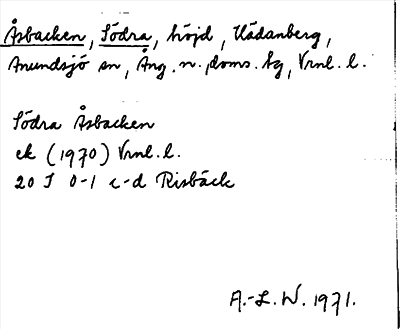 Åsbacken, Södra, höjd, Hädanberg,
Anundsjö sn, Ång. n. doms. tg, Vrnl. l.
Södra Åsbacken
ek (1970) Vrnl. l.
20 J 0-1 c-d Risbäck
A.-L. W. 1971.